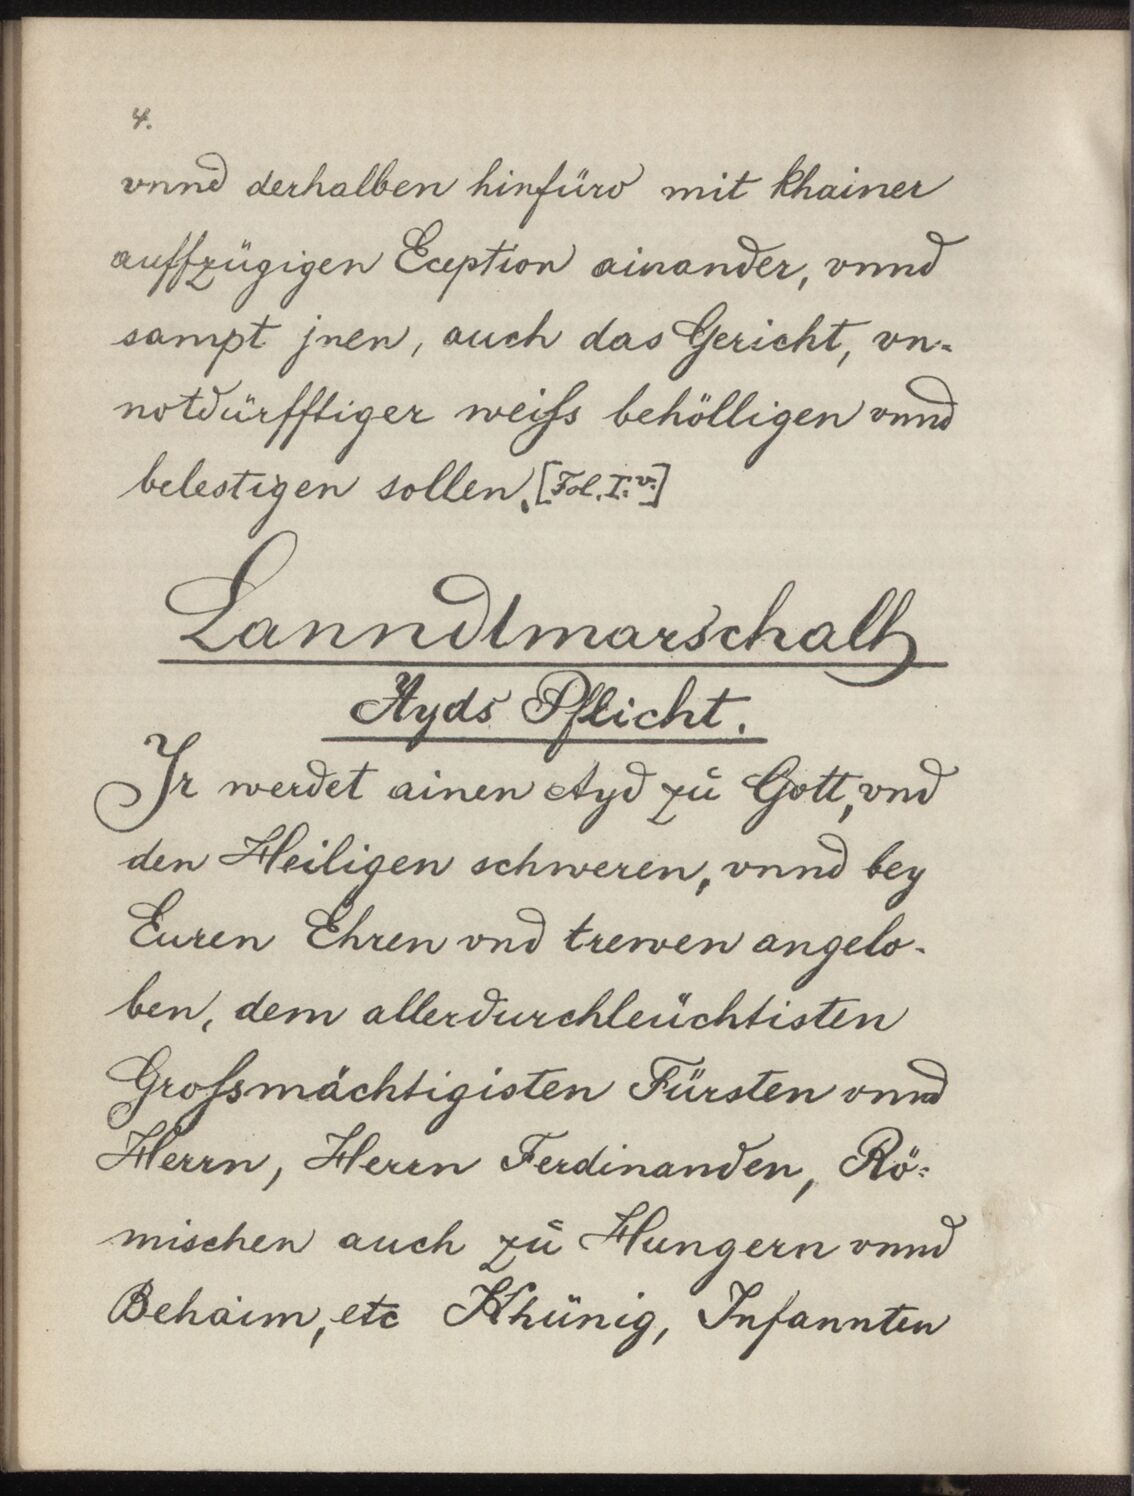 4.
vnnd derhalben hinfüro mit khainer
auffzügigen Eception ainander, vnnd
sampt jnen, auch das Gericht, vn-
notdürfftiger weiss behölligen vnnd
belestigen sollen. [Fol. I. v.]
Lanndtmarschalh
Ayds Pflicht.
Ir werdet ainen Ayd zů Gott, vnd
den Heiligen schweren, vnnd bey
Euren Ehren vnd trewen angelo-
ben, dem allerdurchleüchtisten
Grossmächtigisten Fürsten vnnd
Herrn, Herrn Ferdinanden, Rö-
mischen auch zů Hungern vnnd
Behaim, etc Khünig, Infannten